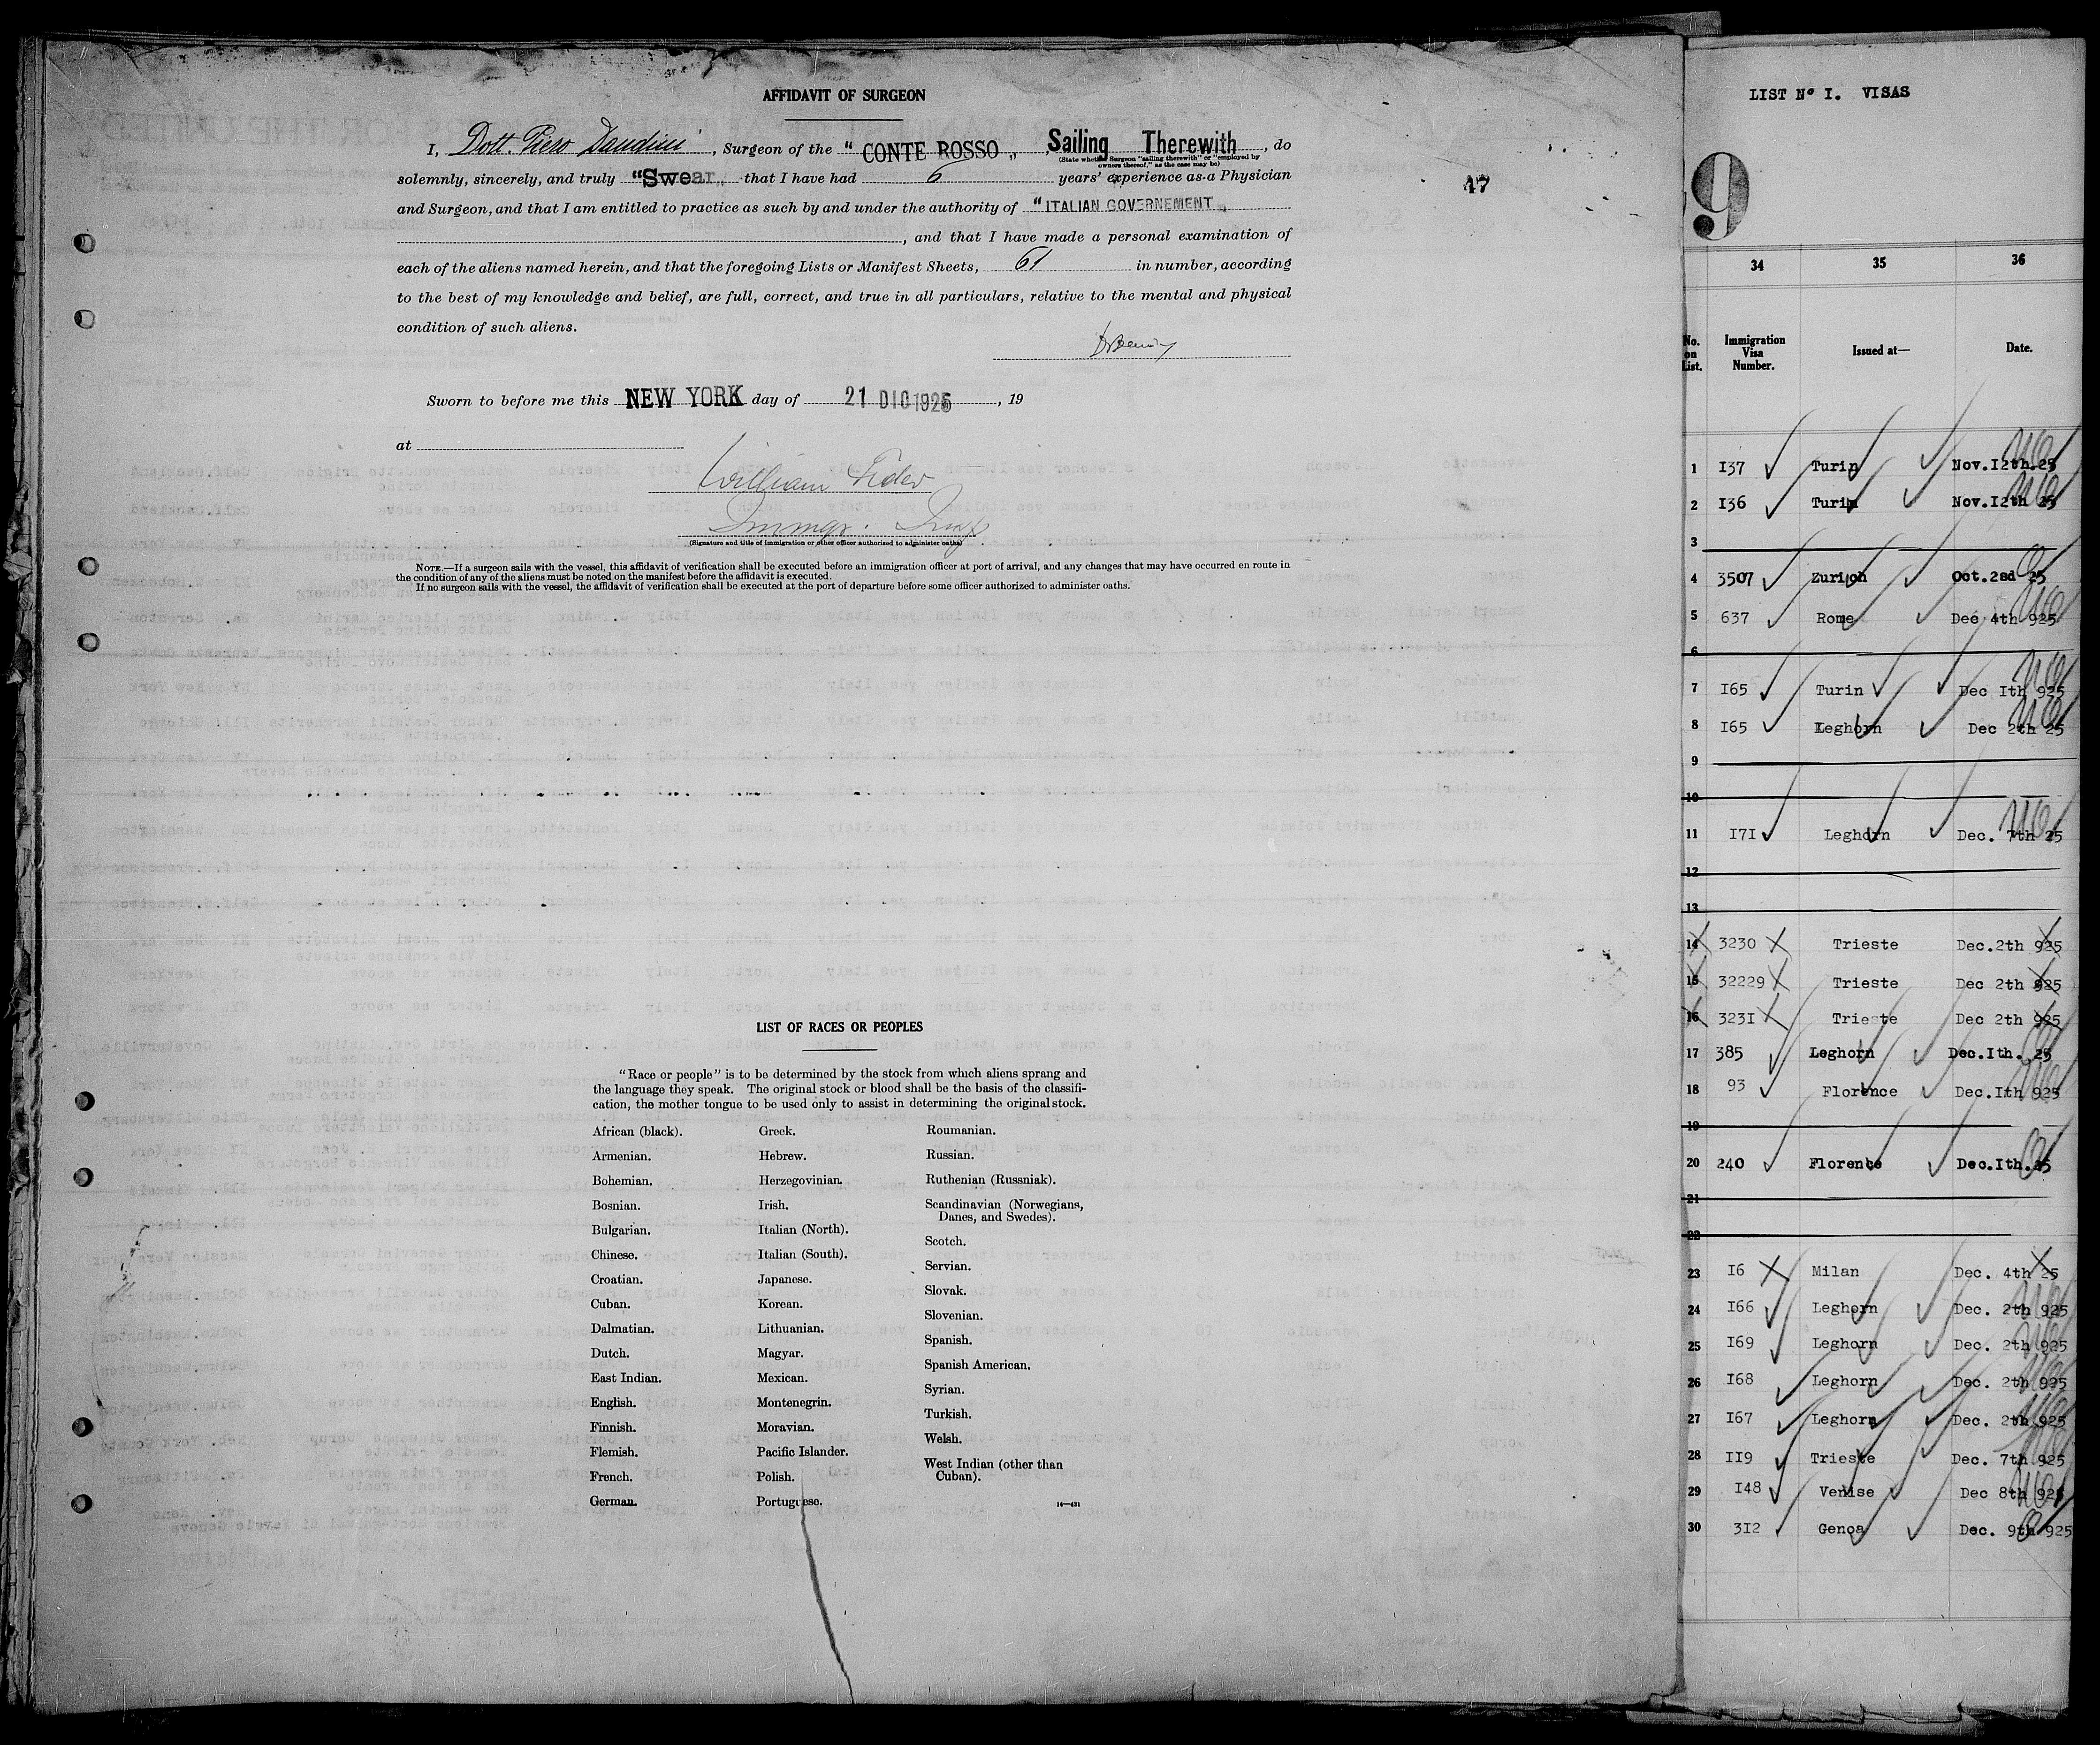 AFFIDAVIT OF SURGEON
I, Dott. Piero Dandini, Surgeon of the "CONTE ROSSO", Sailing Therewith, do
(State whether Surgeon "sailing therewith" or "employed by
owners thereof," as the case may be)
solemnly, sincerely, and truly "Swear" that I have had 6 years' experience as a Physician
and Surgeon, and that I am entitled to practice as such by and under the authority of "ITALIAN GOVERNEMENT"
, and that I have made a personal examination of
each of the aliens named herein, and that the foregoing Lists or Manifest Sheets, 61 in number, according
to the best of my knowledge and belief, are full, correct, and true in all particulars, relative to the mental and physical
condition of such aliens.
Sworn to before me this NEW YORK day of 21 DIC 1925, 19
at
William
Immgr. Insp
(Signature and title of immigration or other officer authorized to administer oaths)
NOTE.—If a surgeon sails with the vessel, this affidavit of verification shall be executed before an immigration officer at port of arrival, and any changes that may have occurred en route in
the condition of any of the aliens must be noted on the manifest before the affidavit is executed.
If no surgeon sails with the vessel, the affidavit of verification shall be executed at the port of departure before some officer authorized to administer oaths.
17
LIST OF RACES OR PEOPLES
"Race or people" is to be determined by the stock from which aliens sprang and
the language they speak. The original stock or blood shall be the basis of the classifi-
cation, the mother tongue to be used only to assist in determining the original stock.
African (black).
Armenian.
Bohemian.
Bosnian.
Bulgarian.
Chinese.
Croatian.
Cuban.
Dalmatian.
Dutch.
East Indian.
English.
Finnish.
Flemish.
French.
German.
Greek.
Hebrew.
Herzegovinian.
Irish.
Italian (North).
Italian (South).
Japanese.
Korean.
Lithuanian.
Magyar.
Mexican.
Montenegrin.
Moravian.
Pacific Islander.
Polish.
Portuguese.
Roumanian.
Russian.
Ruthenian (Russniak).
Scandinavian (Norwegians,
Danes, and Swedes).
Scotch.
Servian.
Slovak.
Slovenian.
Spanish.
Spanish American.
Syrian.
Turkish.
Welsh.
West Indian (other than
Cuban).
14—431
LIST Nº I. VISAS
9
34 35 36
No. on List. Immigration Visa Number. Issued at— Date.
1 I37 Turin Nov.I2th.25
2 I36 Turin Nov.I2th 25
3
4 3507 Zurich Oct.2sd 25
5 637 Rome Dec 4th 925
6
7 I65 Turin Dec Ith 925
8 I65 Leghorn Dec 2th 25
9
10
11 I7I Leghorn Dec. 7th 25
12
13
14 3230 Trieste Dec.2th 925
15 32229 Trieste Dec 2th 925
16 323I Trieste Dec 2th 925
17 385 Leghorn Dec.Ith. 25
18 93 Florence Dec.Ith 925
19
20 240 Florence Dec.Ith.25
21
22
23 I6 Milan Dec. 4th 25
24 I66 Leghorn Dec. 2th 925
25 I69 Leghorn Dec. 2th 925
26 I68 Leghorn Dec. 2th 925
27 I67 Leghorn Dec. 2th 925
28 II9 Trieste Dec. 7th 925
29 I48 Venise Dec 8th 925
30 3I2 Genoa Dec. 9th 925